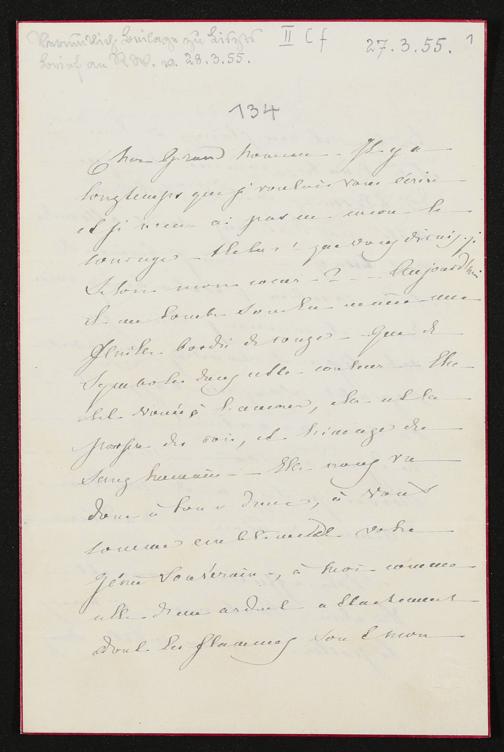 Vermutlich Beilage zu Liszts
Brief an R.W. v. 28.3.55.
II Cf
27.3.55.
1
134
Cher Grand homme - Il y a
longtemps que je voulais vous écrire
et je n'en ai pas eu encore le
courage - Helas! que vous dirais-je
selon mon cœur - ? - Aujourd'hui
il me tombe sous la main une
feuille bordée de rouge - Que de
symboles dans cette couleur Elle
est vouée à l'amour, elle est la
pourpre des rois, et l'image du
sang humain - Elle nous va
donc à tous deux, à vous
comme emblème de votre
génie souverain, à moi comme
celle d'un ardent attachement
dont les flammes sont mon